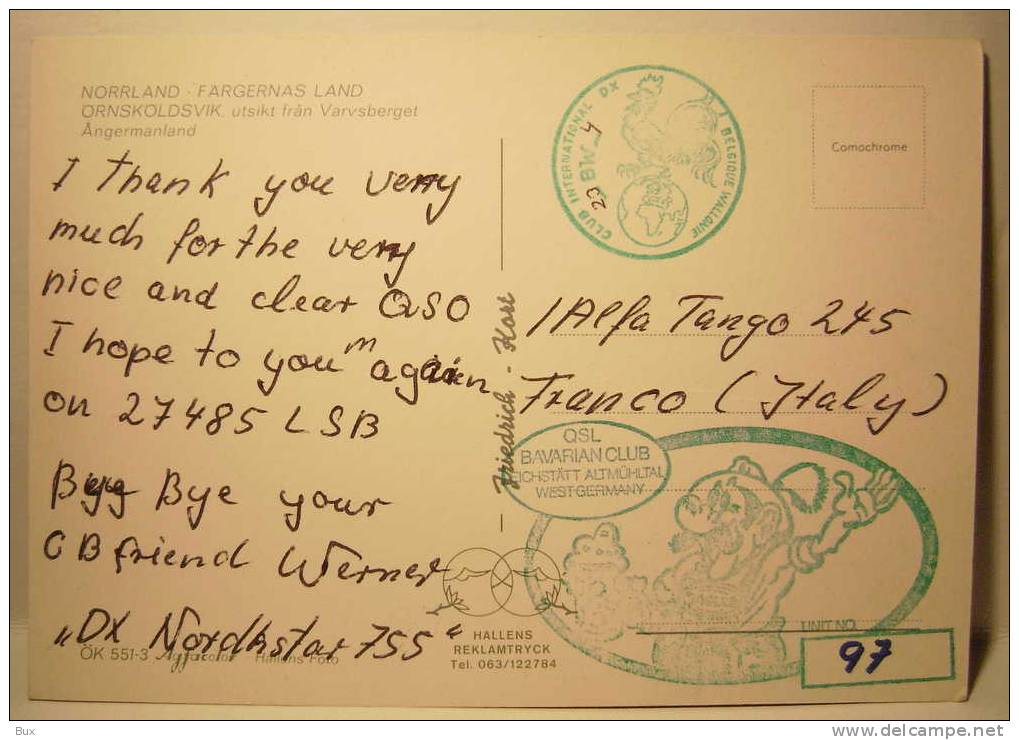 NORRLAND · FÄRGERNAS LAND
ÖRNSKÖLDSVIK, utsikt från Varvsberget
Ångermanland
I thank you verry
much for the very
nice and clear QSO
I hope to you m again
on 27485 LSB
Byy Bye your
CB friend Werner
"DX Nordkstar 755"
ÖK 551-3 Agfacolor Hallens Foto
Friedrich - Kart
HALLENS
REKLAMTRYCK
Tel. 063/122784
CLUB INTERNATIONAL DX BELGIQUE WALLONIE
23 BW 4
Comochrome
1Alfa Tango 245
Franco (Italy)
QSL
BAVARIAN CLUB
EICHSTÄTT ALTMÜHLTAL
WEST GERMANY
UNIT NO.
97
Bux
www.delcampe.net